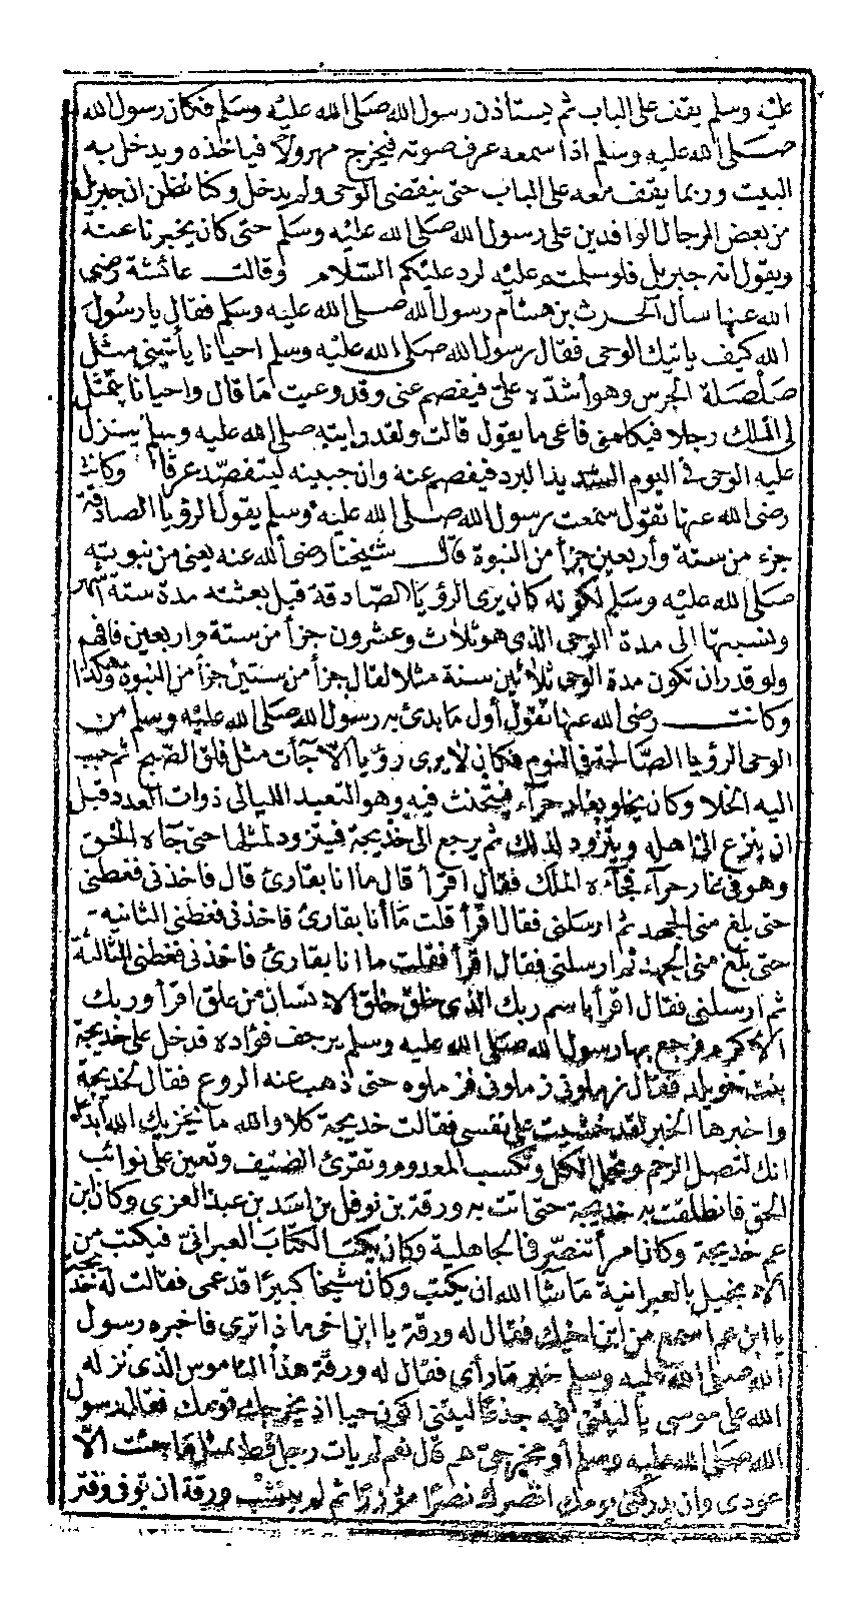 عليه وسلم يقف على الباب ثم يستأذن رسول الله صلى الله عليه وسلم فكان رسول الله
صلى الله عليه وسلم اذا سمعه عرف صوته فيخرج مهرولا فياخذه ويدخل به
البيت وربما يقف معه على الباب حتى ينقضى الوحى ولم يدخل وكنا نظن ان جبريل
من بعض الرجال الوافدين على رسول الله صلى الله عليه وسلم حتى كان يخبرنا عنه
ويقول انه جبريل فلو سلمتم عليه لرد عليكم السّلام وقالت عائشة رضى
الله عنها سأل الحرث بن هشام رسول الله صلى الله عليه وسلم فقال يا رسُول
الله كيف ياتيك الوحى فقال رسول الله صلى الله عليه وسلم احيانا يأتينى مثل
صَلْصَلة الجرس وهو أشدّه علىّ فيفصم عنى وقد وعيت مَا قال واحيانا يتمثل
لى الملك رجلا فيكلمنى فاعى ما يقول قالت ولقد رايته صلى الله عليه وسلم ينزل
عليه الوحى فى اليوم الشديد البرد فيفصم عنه وان جبينه ليتفصّد عرقا وكانت
رضى الله عنها تقول سمعت رسول الله صلى الله عليه وسلم يقول الرؤيا الصادقة
جزء من ستة وأربعين جزأ من النبوة قال شيخنا رضى الله عنه يعنى من نبوته
صلى الله عليه وسلم لكونه كان يرى الرؤيا الصّادقة قبل بعثته مدة ستة أشهر
ونسبتها الى مدة الوحى الذى هو ثلاث وعشرون جزأ من ستة واربعين فافهم
ولو قدر ان تكون مدة الوحى ثلاثين سنة مثلا لقال جزأ من ستين جزأ من النبوة وهكذا
وكانت رضى الله عنها تقول أول ما بدئ به رسول الله صلى الله عليه وسلم من
الوحى الرؤيا الصّالحة فى النوم فكان لا يرى رؤيا الاّ جآت مثل فلق الصّبح ثم حبب
اليه الخلا وكان يخلو بغار حرآء فيتحنث فيه وهو التعبد الليالى ذوات العدد قبل
ان ينزع الى اهله ويتزود لذلك ثم يرجع الى خديجة فيتزود لمثلها حتى جآه الحق
وهو فى غار حرآء فجآءه الملك فقال اقرأ قال ما انا بقارئ قال فاخذنى فغطنى
حتى بلغ منى الجهد ثم ارسلنى فقال اقرأ قلت مَا أنا بقارئ فاخذنى فغطنى الثانيه
حتى بلغ منى الجهد ثم ارسلنى فقال اقرأ فقلت ما انا بقارئ فاخذنى فغطنى الثالثة
ثم ارسلنى فقال اقرأ باسم ربك الذى خلق خلق الانسَان من علق اقرأ وربك
الاكرم فرجع بها رسول الله صلى الله عليه وسلم يرجف فؤاده فدخل على خديجة
بنت خويلد فقال زملونى زملونى فزملوه حتى ذهب عنه الروع فقال لخديجة
واخبرها الخبر لقد خشيت على نفسى فقالت خديجة كلا والله ما يخزيك الله أبدا
انك لتصل الرحم وتحمل الكل وتكسب المعدوم وتقرئ الضيف وتعين على نوائب
الحق فانطلقت به خديجة حتى اتت به ورقة بن نوفل بن اسد بن عبد العزى وكان ابن
عم خديجة وكان امرأ تنصّر فى الجاهلية وكان يكتب الكتَابَ العبرانىّ فيكتب من
الانجيل بالعبرانية مَا شآ الله ان يكتب وكان شيخا كبيرًا قد عمى فقالت له خديجة
يا ابن عم اسمع من ابن اخيك فقال له ورقة يا ابن اخى ماذا ترى فاخبره رسول
الله صلى الله عليه وسلم خبر مَا رأى فقال له ورقة هذا الناموس الذى نزله
الله على موسى يا ليتنى فيه جذعًا ليتنى اكون حيا اذ يخرجك قومك فقال رسول
الله صلى الله عليه وسلم أو مخرجىّ هم قال نعم لم يات رجل قط بمثل مَا جئت الاّ
عودى وان يدركنى يومك انصرك نصرًا مؤزرًا ثم لم ينشب ورقة ان توفى وفتر